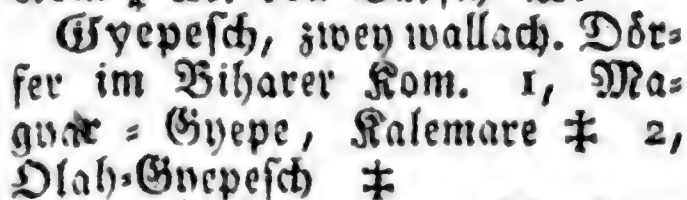 Gyepesch, zwey wallach. Dör=
fer im Biharer Kom. 1, Ma=
gyar = Gyepe, Kalemare ‡ 2,
Olah=Gyepesch ‡